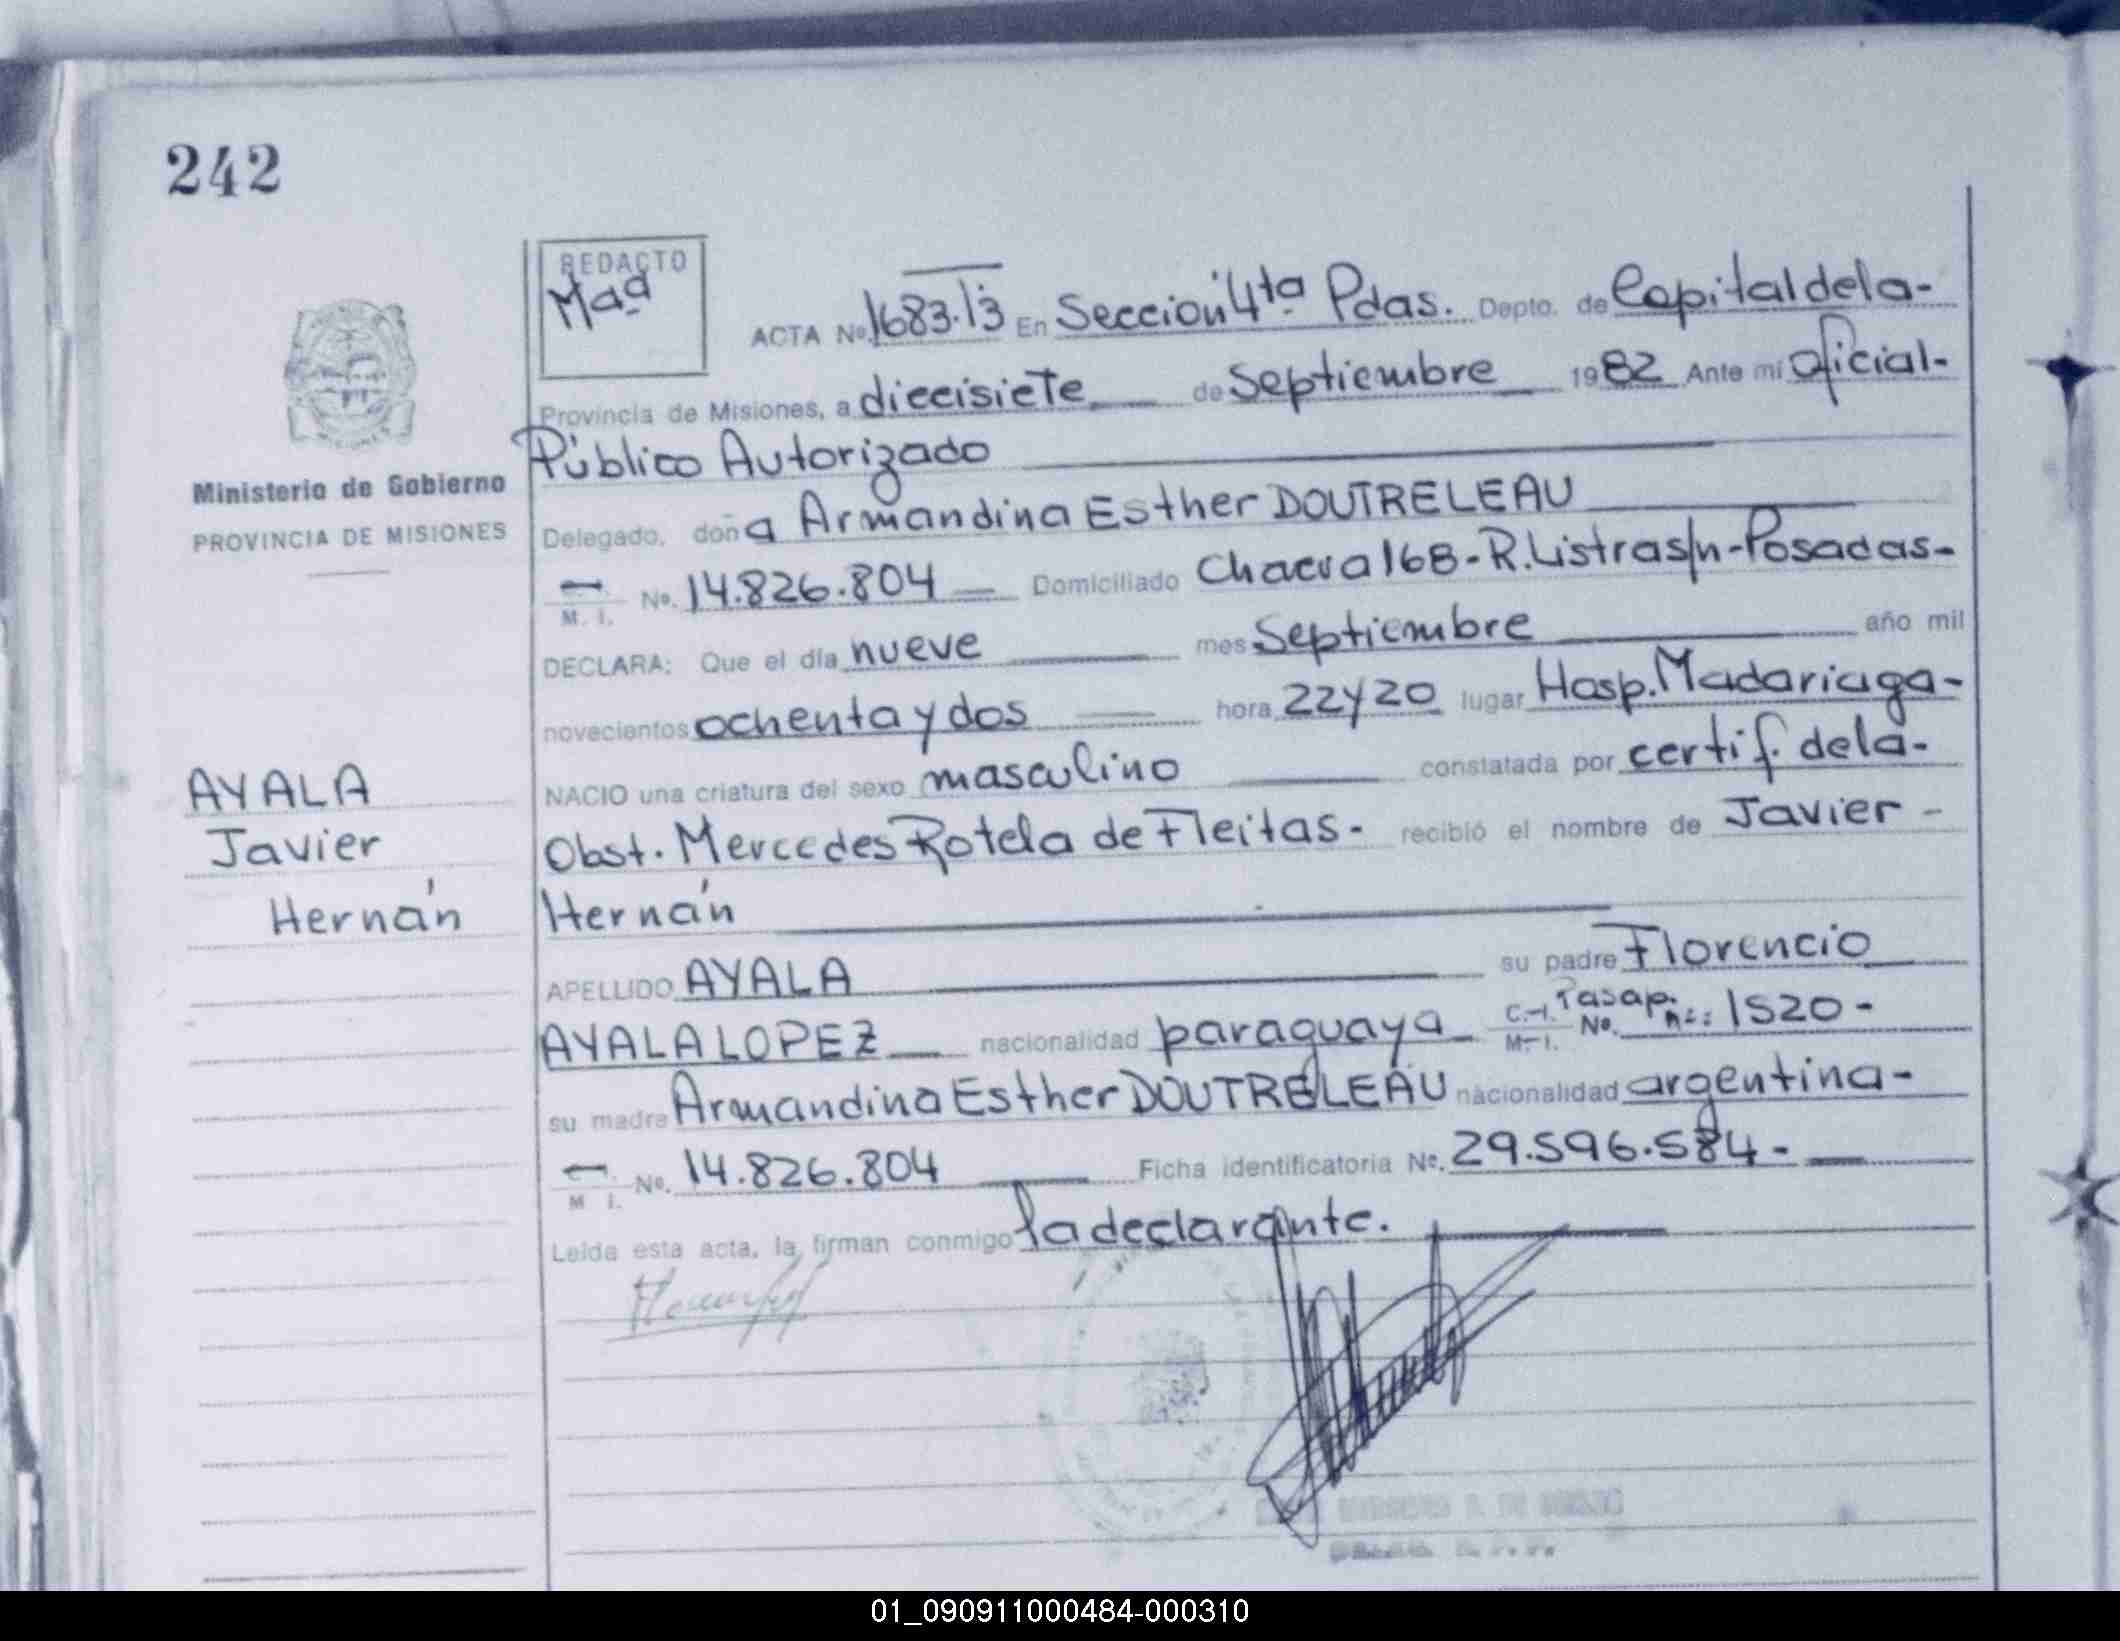 242
REDACTO
Maᵃ
ACTA Nº 1683.13 En Seccion 4ta Pdas. Depto. de Capital dela-
Provincia de Misiones, a diecisiete de Septiembre 1982 Ante mí Oficial-
Público Autorizado
Ministerio de Gobierno
PROVINCIA DE MISIONES
Delegado, doña Armandina Esther DOUTRELEAU
M. I. Nº. 14.826.804 Domiciliado Chacra 168-R.Listras/n-Posadas-
DECLARA: Que el día nueve mes Septiembre año mil
novecientos ochenta y dos hora 22y20 lugar Hosp. Madariaga-
NACIO una criatura del sexo masculino constatada por certif. dela-
Obst. Mercedes Rotela de Fleitas- recibió el nombre de Javier -
Hernán
AYALA
Javier
Hernán
APELLIDO AYALA su padre Florencio
AYALA LOPEZ nacionalidad paraguaya C.I. M.I. Pasap. Nº. 1520-
su madre Armandina Esther DOUTRELEAU nacionalidad argentina-
M I. Nº. 14.826.804 Ficha identificatoria Nº. 29.596.584-
Leída esta acta, la firman conmigo la declarante.
01_090911000484-000310